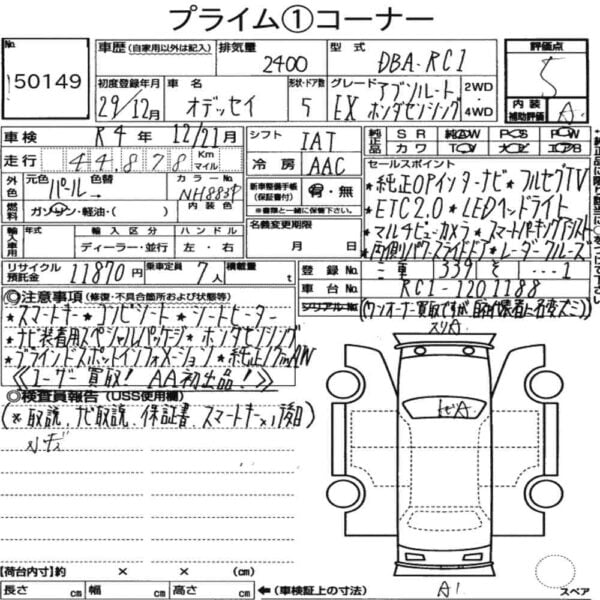 プライム①コーナー
No. 50149
車歴 (自家用以外は記入) 排気量 2400 型式 DBA-RC1
評価点 5
初度登録年月 29/12月 車名 オデッセイ 形状・ドア数 5 グレード アブソルート EX ホンダセンシング 2WD・4WD
内装補助評価 A
車検 R4年 12/21月 シフト IAT
走行 44,878 Km マイル 冷房 AAC
純正品 SR 純正AW PS PW
カワ TV エアB
外色 元色 パール 色替→ カラーNo. NH883P
燃料 ガソリン・軽油・( ) 内装色
新車整備手帳 (保証書付) 有・無
※書類と一緒に保管下さい。
セールスポイント
★純正OPインターナビ★フルセグTV
★ETC2.0★LEDヘッドライト
★マルチビューカメラ★スマートパーキングアシスト
★両側パワースライドドア★レーダークルーズ
輸入車用 年式 輸入区分 ディーラー・並行 ハンドル 左・右
名義変更期限 月 日
リサイクル預託金 11870円 乗車定員 7人 積載量 t
登録No. 339 そ ・・・1
車台No. RC1-1201188
シリアルNo.
(ワンオーナー買取ですが、取扱店業者に名変ズミ)
◎注意事項(修復・不具合箇所および状態等)
★スマートキー★コンビシート★シートヒーター
★ナビ装着用スペシャルパッケージ★ホンダセンシング
★ブラインドスポットインフォメーション★純正17inAW
《ユーザー買取! AA初出品!》
◎検査員報告(USS使用欄)
(※取説、ナビ取説、保証書、スマートキー×1後日)
スリA
トビA
A1
【荷台内寸】約 × × (cm)
長さ cm 幅 cm 高さ cm ←(車検証上の寸法)
スペア